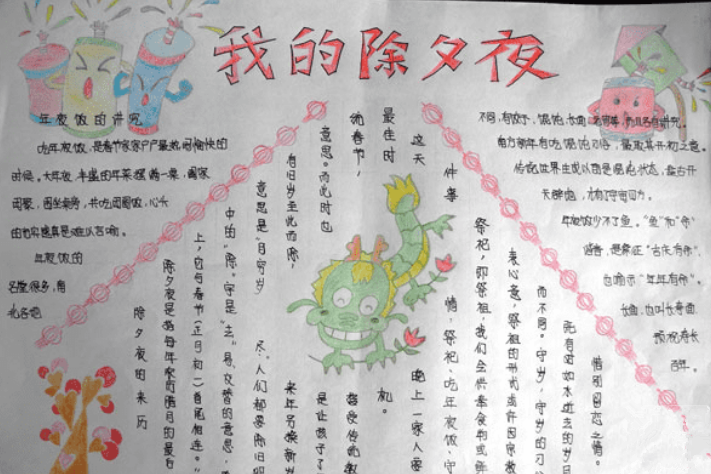 我的除夕夜
年夜饭的讲究
吃年夜饭，是春节家家户户最热闹愉快的
时候。大年夜，丰盛的年菜摆满一桌，阖家
团聚，围坐桌旁，共吃团圆饭，心头
的充实感真是难以言喻。
年夜饭的
名堂很多，南
北各地
不同，有饺子、馄饨、长面、元宵等，而且各有讲究。
南方新年有吃馄饨习俗，最取其开初之意。
传说世界生成以前是混沌状态，盘古开
天辟地，才有了宇宙四方。
年夜饭少不了鱼。“鱼”和“余”
谐音，是象征“吉庆有余”，
也喻示“年年有余”。
长面，也叫长寿面，
预祝寿长
百年。
除夕夜的来历
除夕夜是指每年农历腊月的最后
上，它与春节(正月初一)首尾相连。“
中的“除”字是“去；易；交替”的意思，
意思是“月穷岁
尽”，人们都要除旧
有旧岁至此而除，
来年另换新岁
意思。而此时也
是让孩子了
统春节，
最佳时
机。
这天
晚上一家人要
件事
情，祭祀、吃年夜饭、守
祭祀，即祭祖，我们会供奉食物或鲜
表心意，祭祖的形式或许因宗教
而不同。守岁，守岁的习
既有对如水逝去的岁
惜别留恋之情